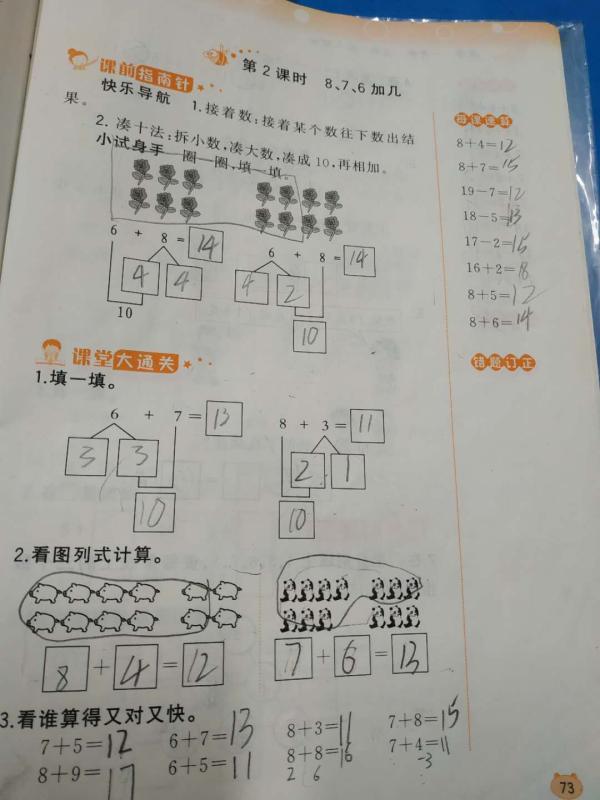 第2课时 8、7、6加几
课前指南针
快乐导航 1. 接着数:接着某个数往下数出结
果。
2. 凑十法:拆小数,凑大数,凑成10,再相加。
小试身手 圈一圈,填一填。
6 + 8 = 14
4 4
10
6 + 8 = 14
4 2
10
课堂大通关
1. 填一填。
6 + 7 = 13
3 3
10
8 + 3 = 11
2 1
10
2. 看图列式计算。
8 + 4 = 12
7 + 6 = 13
3. 看谁算得又对又快。
7+5=12 6+7=13 8+3=11 7+8=15
8+9=17 6+5=11 8+8=16 7+4=11
2 6 -3
8+4=12
8+7=15
19-7=12
18-5=13
17-2=15
16+2=18
8+5=12
8+6=14
错题订正
73